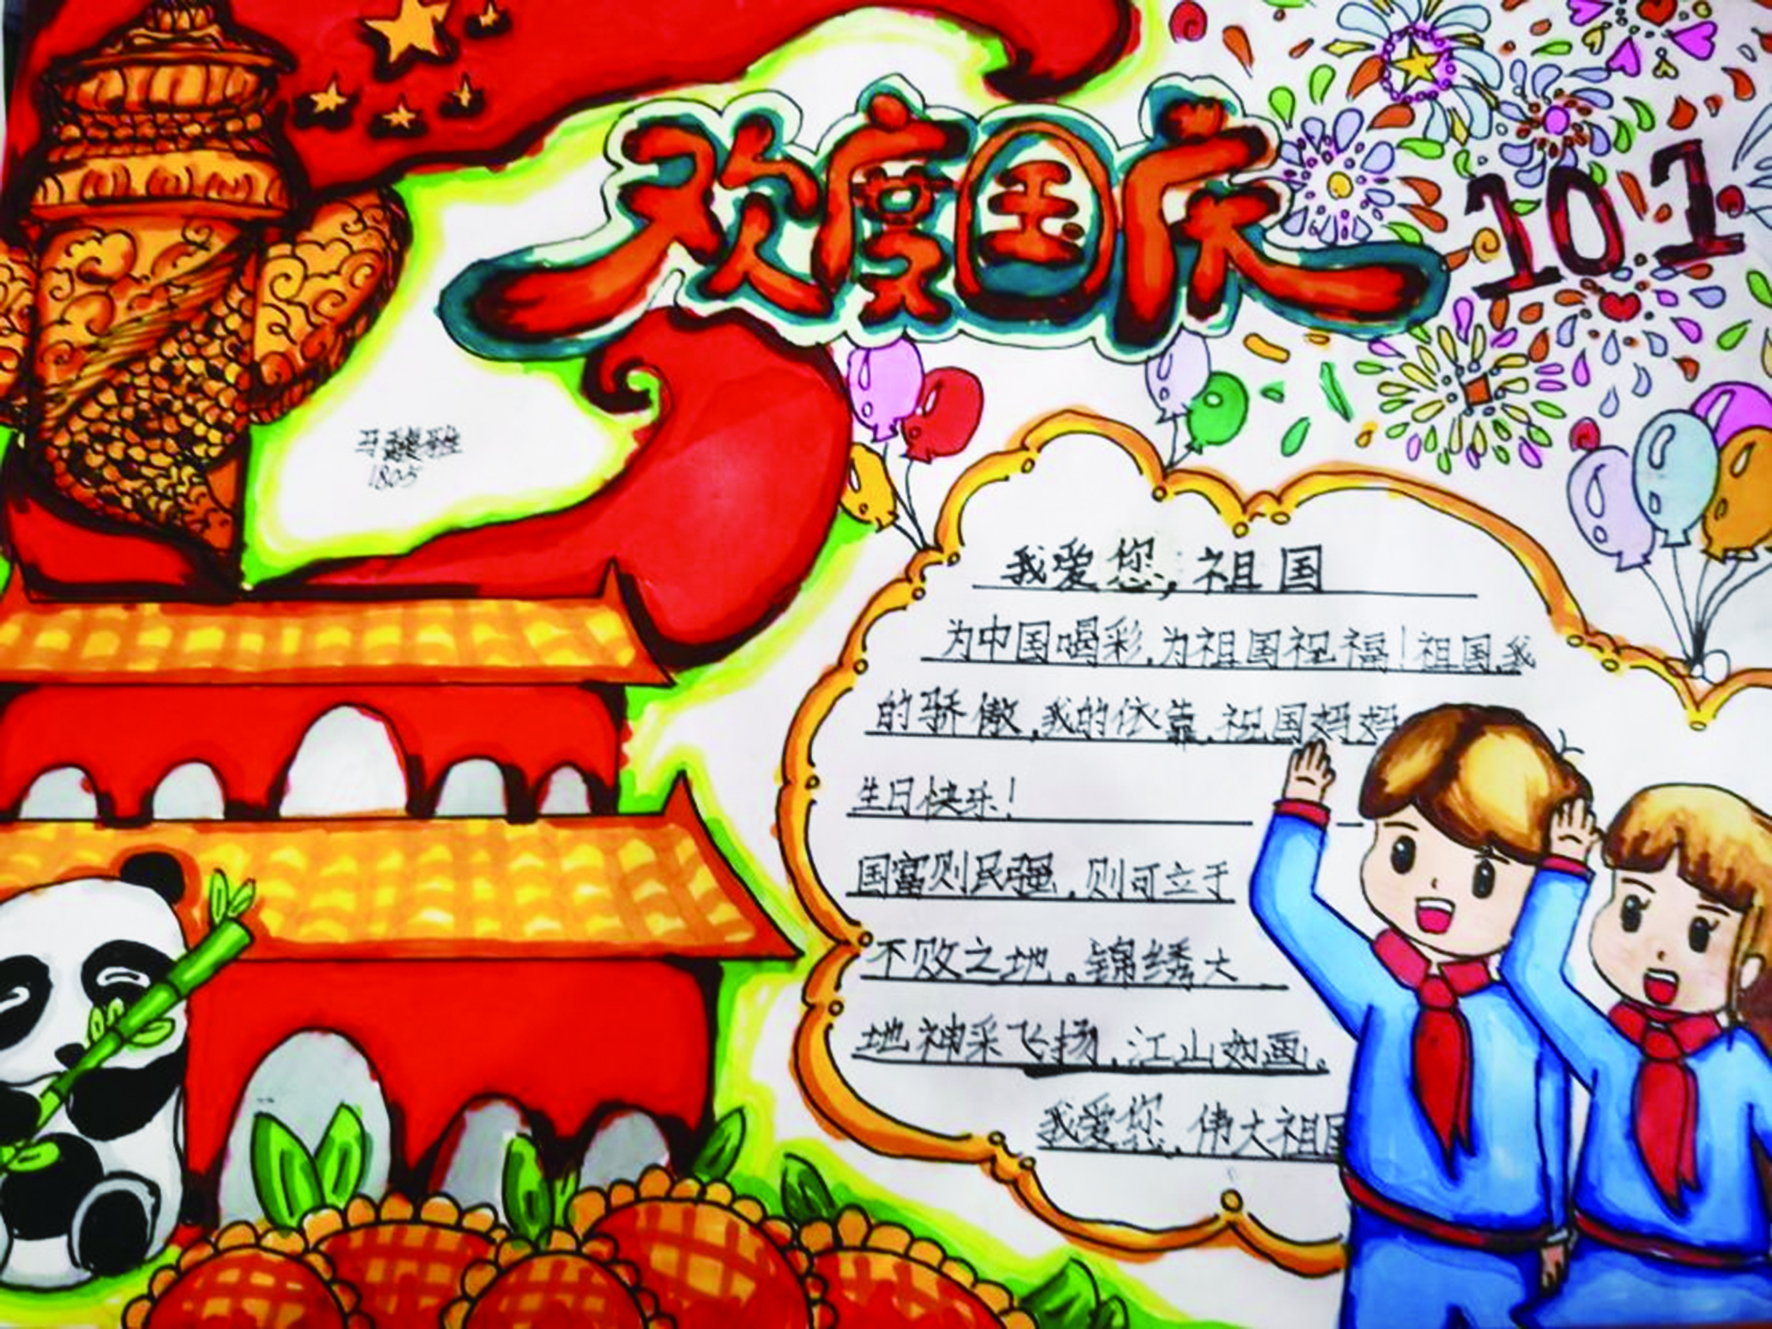 欢度国庆
10.1
1805
我爱您,祖国
为中国喝彩,为祖国祝福!祖国,我
的骄傲,我的依靠,祖国妈妈
生日快乐!
国富则民强,则可立于
不败之地。锦绣大
地神采飞扬,江山如画。
我爱您,伟大祖国